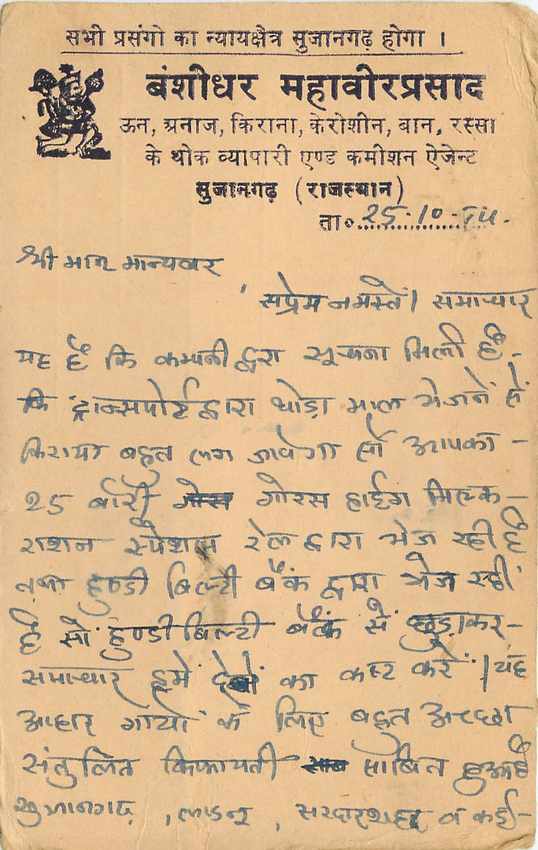 सभी प्रसंगो का न्यायक्षेत्र सुजानगढ़ होगा ।
बंशीधर महावीरप्रसाद
ऊन, अनाज, किराना, केरोशीन, बान, रस्सा
के थोक व्यापारी एण्ड कमीशन ऐजेन्ट
सुजानगढ़ (राजस्थान)
ता० 25-10-
श्री मान मान्यवर
सप्रेम नमस्ते। समाचार
यह है कि कम्पनी द्वारा सूचना मिली है -
कि ट्रान्सपोर्ट द्वारा थोड़ा माल भेजने से
किराया बहुत लग जावेगा सो आपका -
25 बोरी गोरस हाईग मिल्क -
राशन स्पेशल रेल द्वारा भेज रही है
तथा हुण्डी बिल्टी बैंक द्वारा भेज रही
है सो हुण्डी बिल्टी बैंक से छुड़ाकर -
समाचार हमें देने का कष्ट करें । यह
आहार गायों के लिए बहुत अच्छा
संतुलित किफायती साबित हुआ है
सुजानगढ़, लाडनू, सरदारशहर व कई -